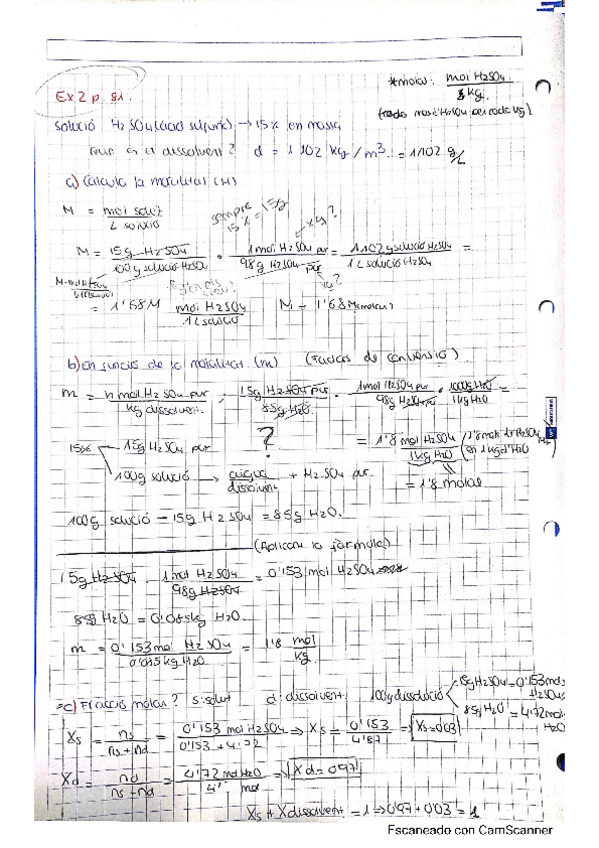 *molar: mol H2SO4 / 1 kg.
Ex 2 p. 81.
Solució H2SO4 (àcid sulfúric) → 15% en massa
que és el dissolvent? d = 1102 kg/m³ = 1102 g/L
a) Calcula la molaritat (M)
M = mol solut / L solució
sempre 15% = 15g
x q?
M = 15g H2SO4 / 100g solució H2SO4 · 1 mol H2SO4 pur / 98g H2SO4 pur = 1102g solució H2SO4 / 1L solució H2SO4 =
= 1'68M mol H2SO4 / 1L solució M = 1'68M
b) En funció de la molalitat (m) (Factors de conversió)
m = n mol H2SO4 pur / kg dissolvent ; 15g H2SO4 pur / 85g H2O · 1mol H2SO4 pur / 98g H2SO4 pur · 1000g H2O / 1kg H2O =
?
= 1'8 mol H2SO4 / 1kg H2O
15% 15g H2SO4 pur
100g solució → aigua dissolvent + H2SO4 pur
= 1'8 molal
100g solució − 15g H2SO4 = 85g H2O.
(Aplicar la fórmula)
15g H2SO4 · 1 mol H2SO4 / 98g H2SO4 = 0'153 mol H2SO4
85g H2O = 0'085kg H2O
m = 0'153 mol H2SO4 / 0'085 kg H2O = 1'8 mol / kg
c) Fracció molar? s: solut d: dissolvent 100g dissolució
15g H2SO4 = 0'153 mol H2SO4
85g H2O = 4'72 mol H2O
Xs = ns / ns + nd = 0'153 mol H2SO4 / 0'153 + 4'72 ⇒ Xs = 0'153 / 4'87 ⇒ Xs = 0'03
Xd = nd / ns + nd = 4'72 mol H2O / ⇒ Xd = 0'97
Xs + X dissolvent = 1 → 0'97 + 0'03 = 1
Escaneado con CamScanner